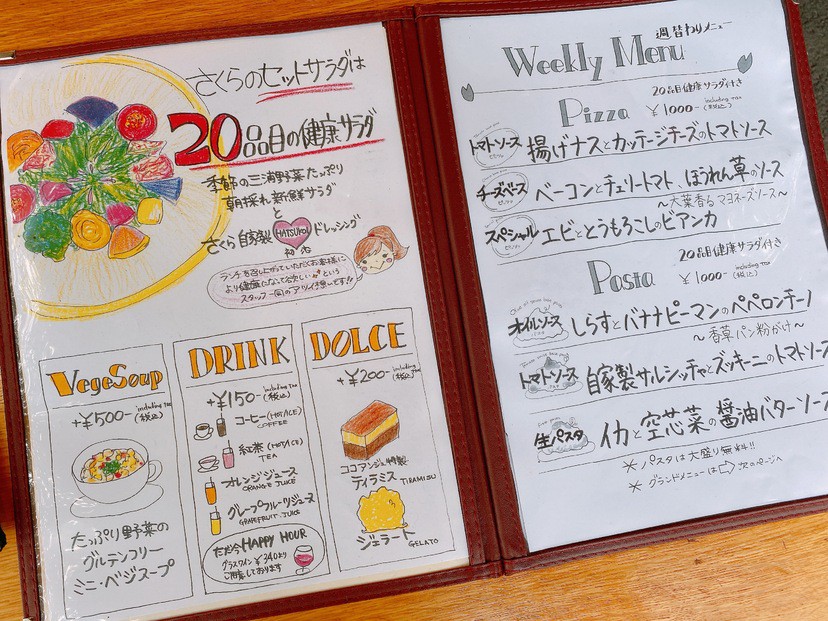 さくらのセットサラダは
20品目の健康サラダ
季節の三浦野菜たっぷり
朝採れ新鮮サラダ
と
さくら自家製 HATSUKOI ドレッシング
初恋
ランチを召し上がっていただくお客様に
より健康になって欲しい という
スタッフ一同のアツイ想いです!!
VegeSoup
+¥500- including tax (税込)
たっぷり野菜の
グルテンフリー
ミニ・ベジスープ
DRINK
+¥150- including tax (税込)
コーヒー (HOT/ICE)
COFFEE
紅茶 (HOT/ICE)
TEA
オレンジジュース
ORANGE JUICE
グレープフルーツジュース
GRAPEFRUIT JUICE
ただ今 HAPPY HOUR
グラスワイン ¥340より
ご用意しております
DOLCE
+¥200- including tax (税込)
ココアンジェ特製
ティラミス TIRAMISU
ジェラート GELATO
週替わりメニュー
Weekly Menu
20品目健康サラダ付き
Pizza ¥1000- including tax (税込)
トマトソース 揚げナスとカッテージチーズのトマトソース
チーズベース ベーコンとチェリートマト、ほうれん草のソース
〜大葉香るマヨネーズソース〜
スペシャル エビととうもろこしのビアンカ
20品目健康サラダ付き
Pasta ¥1000- including tax (税込)
オイルソース しらすとバナナピーマンのペペロンチーノ
〜香草パン粉がけ〜
トマトソース 自家製サルシッチャとズッキーニのトマトソース
生パスタ イカと空芯菜の醤油バターソース
＊パスタは大盛り無料!!
＊グランドメニューは⇨次のページへ